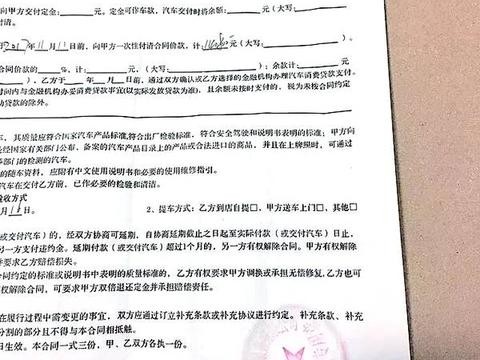 向甲方交付定金: 元。定金可作车款,汽车交付时将余额: 元(大写:
付清。
于2017年11月11日前,向甲方一次性付清合同价款,计 元(大写:
合同价款的 %,计: 元,(大写: );余款计:
),乙方于 年 月 日前,通过双方确认或乙方选择的金融机构办理汽车消费贷款支付。
时间内与金融机构办妥消费贷款事宜(以实际发放贷款为准),且余额未按时支付的,视为未按合同约定
动贷款的除外。
车,其质量应符合国家汽车产品标准,符合出厂检验标准,符合安全驾驶和说明书表明的标准;甲方向
经国家有关部门公布、备案的汽车产品目录上的产品或合法进口的商品,并且在上牌照时,可通过
部门的检测的汽车。
的随车资料,应附有中文使用说明书和必要的使用维修指引。
汽车在交付乙方前,已作必要的检验和清洁。
验收方式
月1日。 2、提车方式:乙方到店自提□,甲方送车上门□,其他□
或交付汽车)的,经双方协商可延期,自协商延期截止之日起至实际付款(或交付汽车)日止,
另一方支付违约金。延期付款(或交付汽车)超过1个月的,另一方有权解除合同。甲方有权解除
并要求乙方赔偿损失。
合同约定的或说明书中表明的质量标准的,乙方有权要求甲方调换或承担无偿修复,乙方也可
解除合同,可要求甲方双倍返还定金并承担赔偿责任。
在履行过程中需变更的事宜,双方应通过订立补充条款或补充协议进行约定。补充条款、补充
分割的部分且不得与本合同相抵触。
日生效。本合同一式三份,甲、乙双方各执一份。